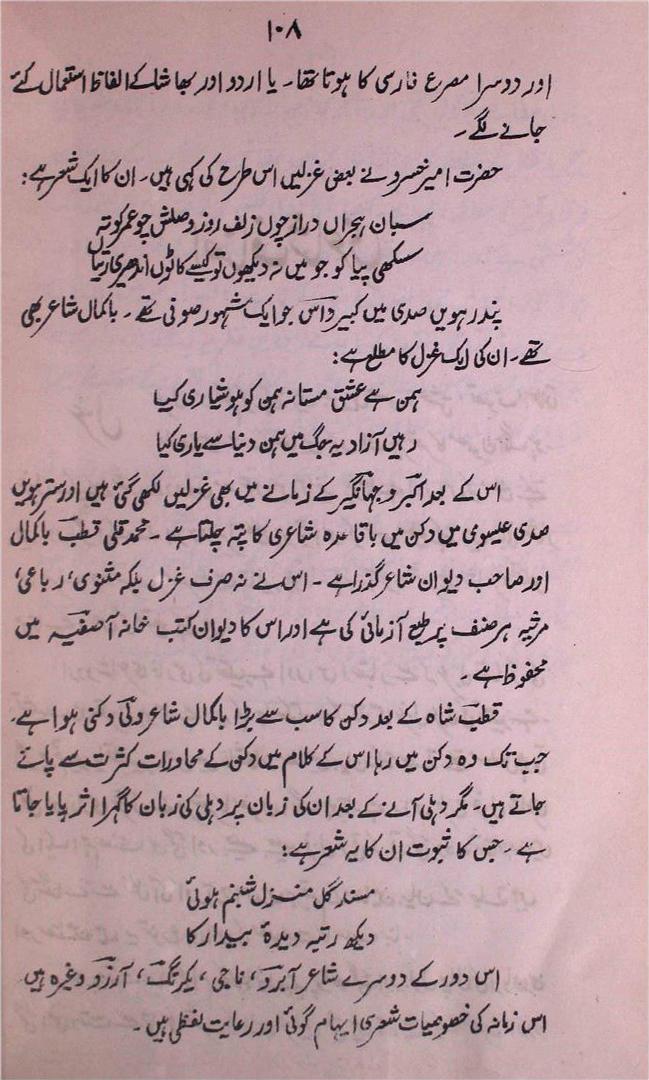 ۱۰۸
اور دوسرا مصرع فارسی کا ہوتا تھا۔ یا اردو اور بھاشا کے الفاظ استعمال کئے
جانے لگے۔
حضرت امیر خسرو نے بعض غزلیں اس طرح کی کہی ہیں۔ ان کا ایک شعر ہے:
سبان ہجراں دراز چوں زلف روز وصلش چو عمر کوتہ
سکھی پیا کو جو میں نہ دیکھوں تو کیسے کاٹوں اندھیری رتیا
پندرہویں صدی میں کبیر داس جو ایک مشہور صوفی تھے۔ باکمال شاعر بھی
تھے۔ ان کی ایک غزل کا مطلع ہے:
ہمن ہے عشق مستانہ ہمن کو ہوشیاری کیا
رہیں آزاد یہ جگ میں ہمن دنیا سے یاری کیا
اس کے بعد اکبر و جہانگیر کے زمانے میں بھی غزلیں لکھی گئی ہیں اور ستر ہویں
صدی عیسوی میں دکن میں باقاعدہ شاعری کا پتہ چلتا ہے۔ محمد قلی قطب باکمال
اور صاحب دیوان شاعر گذرا ہے۔ اس نے نہ صرف غزل بلکہ مثنوی، رباعی،
مرثیہ ہر صنف پر طبع آزمائی کی ہے اور اس کا دیوان کتب خانہ آصفیہ میں
محفوظ ہے۔
قطب شاہ کے بعد دکن کا سب سے بڑا باکمال شاعر ولی دکنی ہوا ہے۔
جب تک وہ دکن میں رہا اس کے کلام میں دکن کے محاورات کثرت سے پائے
جاتے ہیں۔ مگر دہلی آنے کے بعد ان کی زبان پر دہلی کی زبان کا گہرا اثر پایا جاتا
ہے۔ جس کا ثبوت ان کا یہ شعر ہے:
مسند گل منزل شبنم ہوئی
دیکھ رتبہ دیدۂ بیدار کا
اس دور کے دوسرے شاعر آبرو، ناجی، یکرنگ، آرزو وغیرہ ہیں
اس زمانہ کی خصوصیات شعری ایہام گوئی اور رعایت لفظی ہیں۔